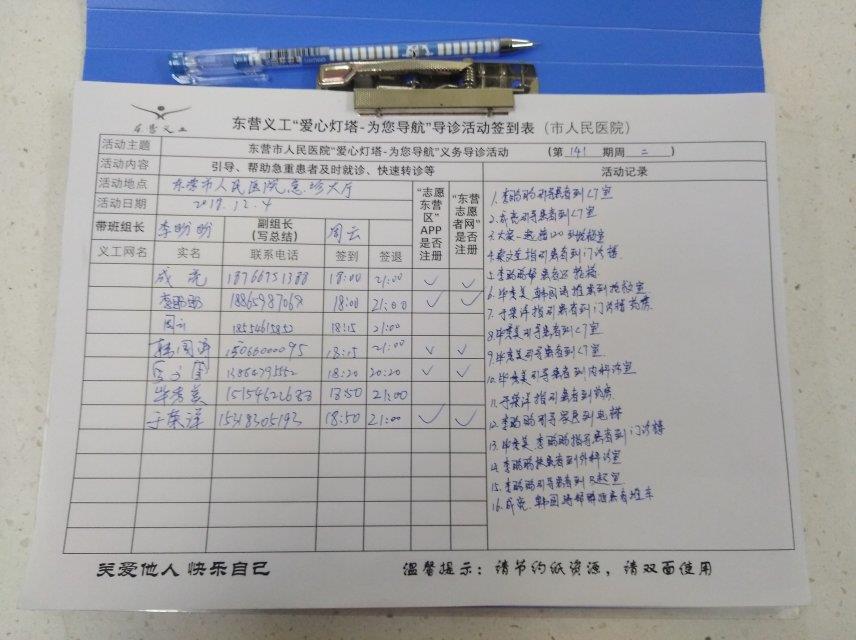 东营义工
东营义工“爱心灯塔-为您导航”导诊活动签到表（市人民医院）
活动主题 东营市人民医院“爱心灯塔-为您导航”义务导诊活动 （第 141 期周 二 ）
活动内容 引导、帮助急重患者及时就诊、快速转诊等 活动记录
活动地点 东营市人民医院急诊大厅
活动日期 12.4
带班组长 李盼盼 副组长（写总结） 周云 “志愿东营区”APP是否注册 “东营志愿者网”是否注册
义工网名 实名 联系电话 签到 签退
成亮 18766751388 18:00 21:00 ✓ ✓
李盼盼 18865987069 18:00 21:00 ✓ ✓
周云 18:15 21:00
韩国涛 15066000095 18:15 21:00 ✓ ✓
18:20 20:20 ✓ ✓
毕秀美 21:00
于荣洋 15318305193 18:50 21:00 ✓ ✓
1.李盼盼引导患者到CT室
2.成亮引导患者到CT室
3.大家一起抬120到抢救室
4.指引患者到门诊楼
5.李盼盼
6.毕秀美、韩国涛推患到抢救室
7.于荣洋指引患者到门诊楼药房
8.毕秀美引导患者到CT室
9.毕秀美引导患者到CT室.
10.毕秀美引导患者到内科诊室
11.于荣洋指引患者到药房
12.李盼盼引导家属到电梯
13.毕秀美 李盼盼指导患者到门诊楼
14.李盼盼患者到外科诊室
15.李盼盼引导患者到B超室
16.成亮、韩国涛
关爱他人 快乐自己
温馨提示：请节约纸资源，请双面使用